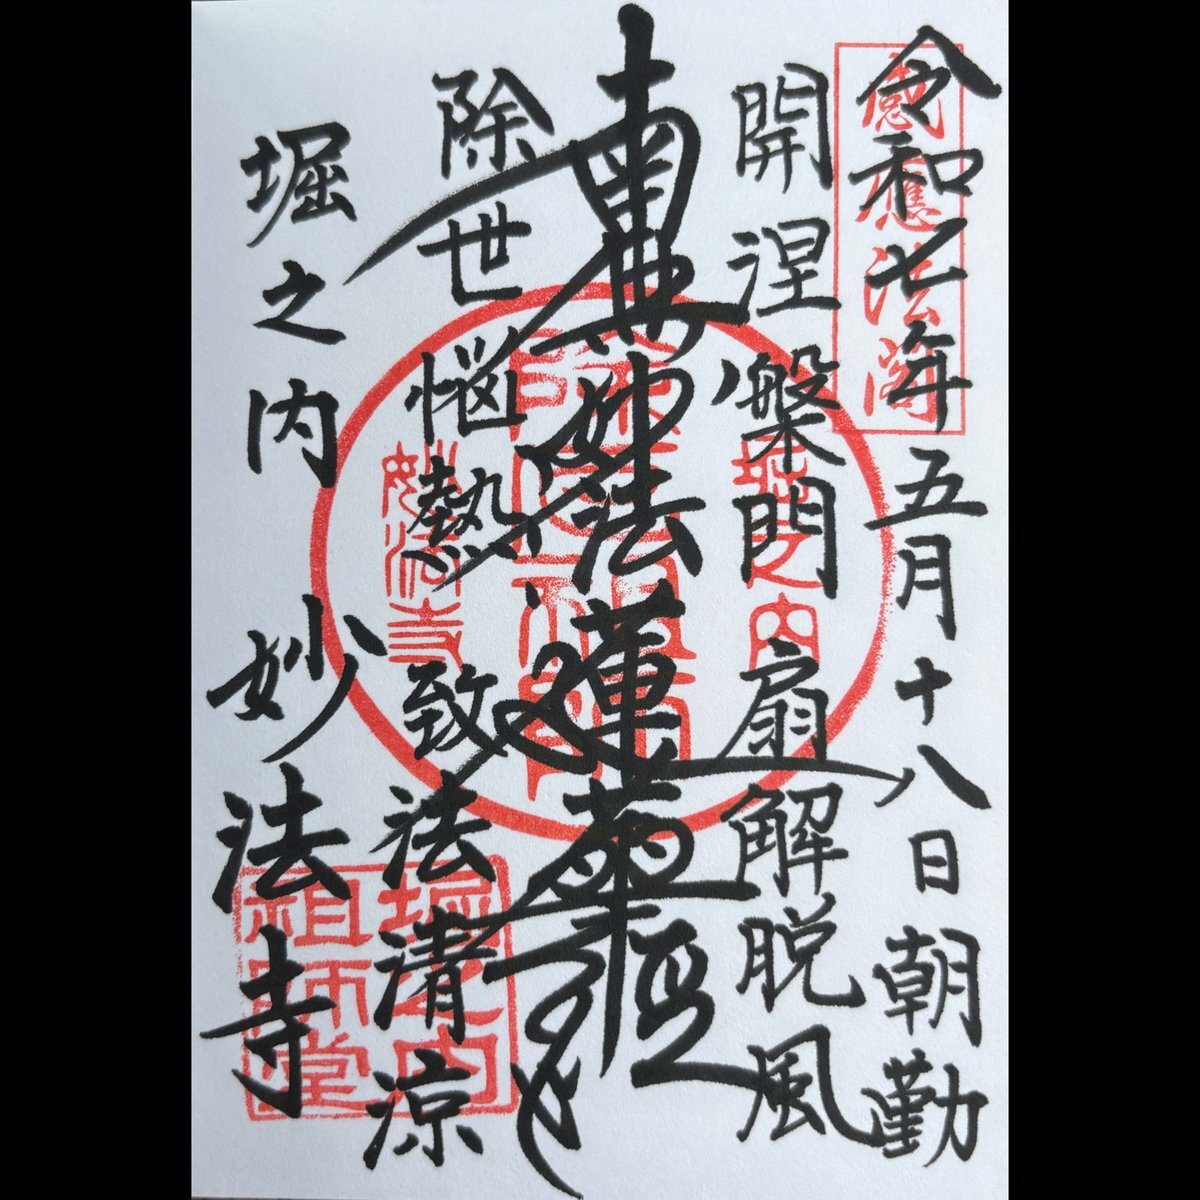 令和七年五月十八日朝勤
開涅槃門扇解脱風
南無妙法蓮華経
除世悩熱致法清涼
堀之内妙法寺
感應法閣
堀之内
妙法寺
堀之内
祖師堂